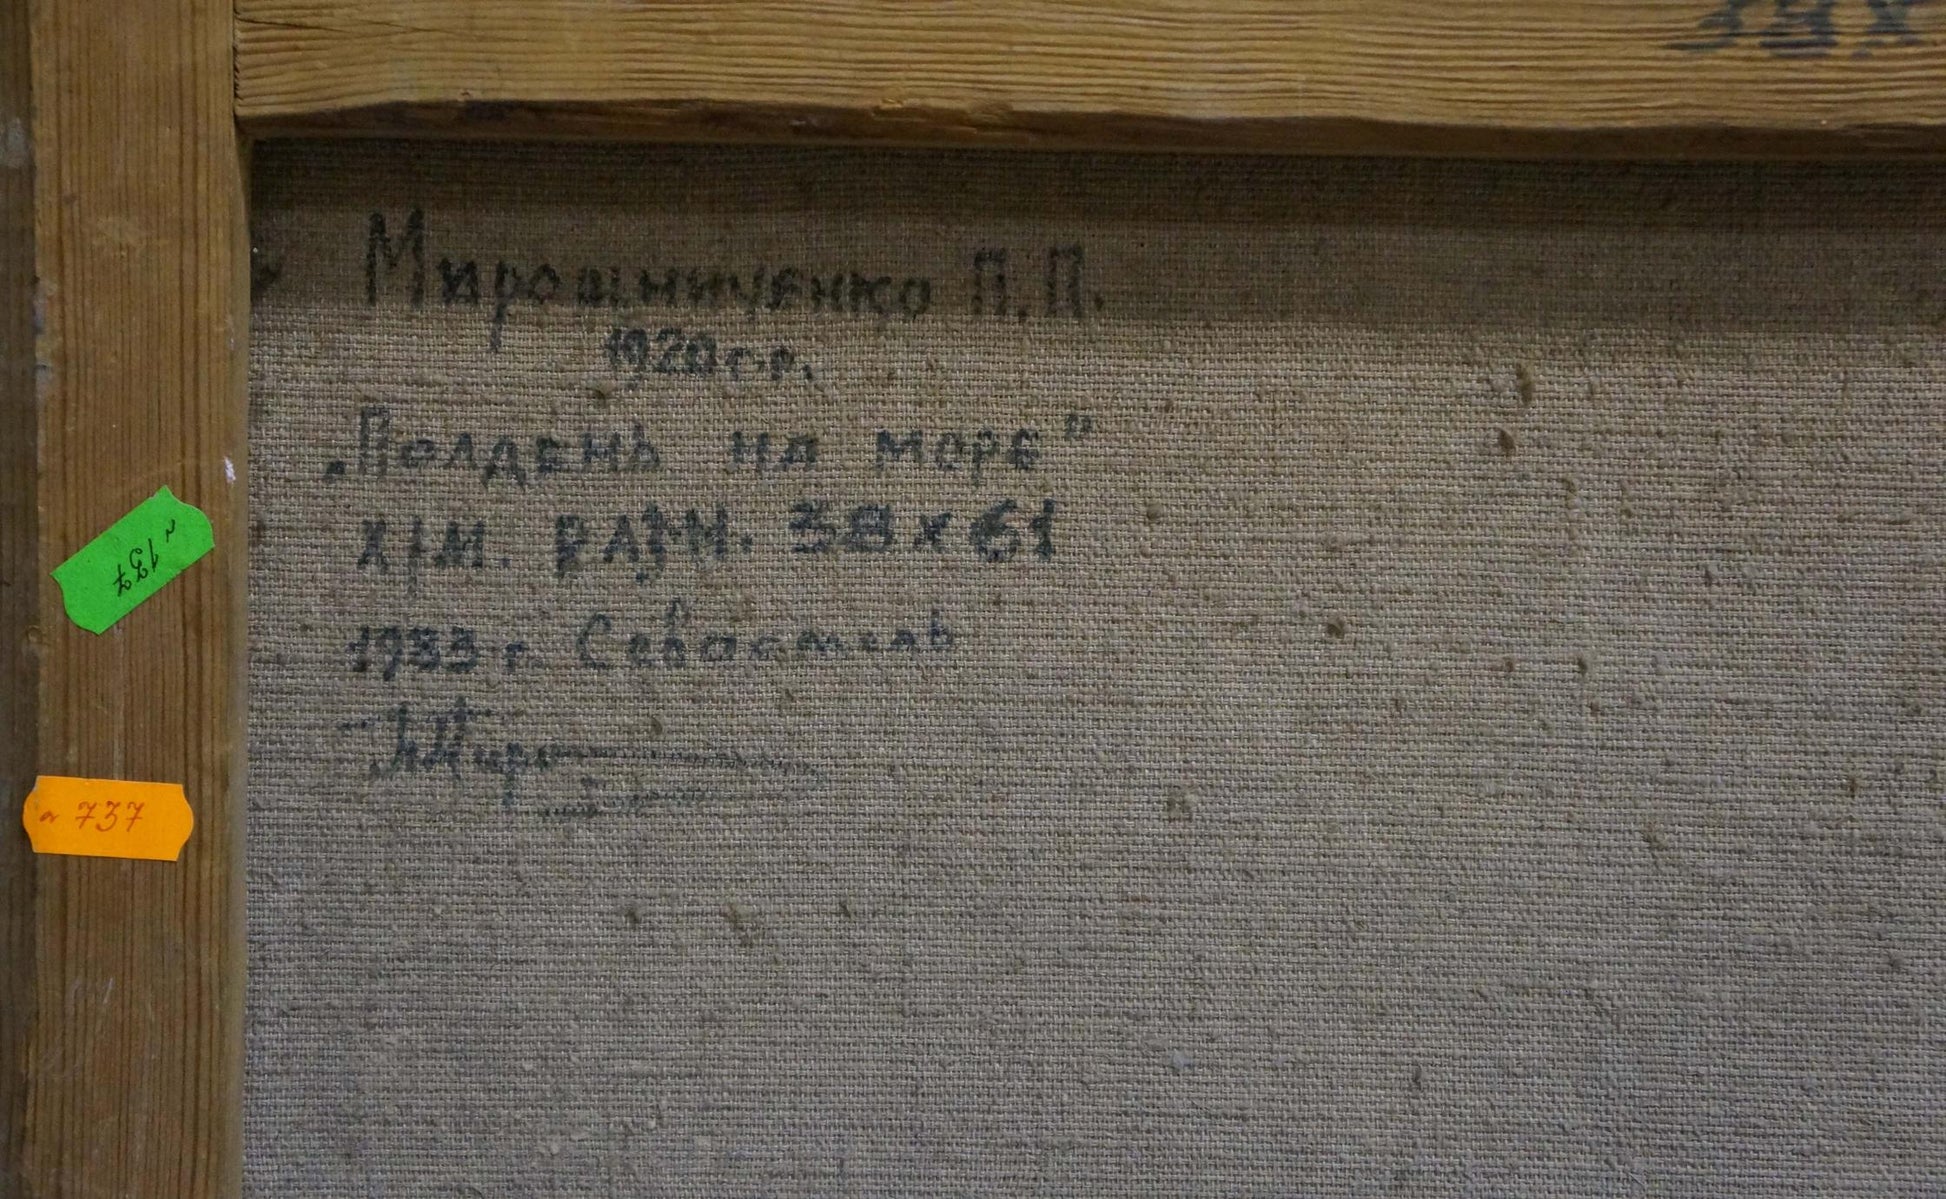 38х
Мирошниченко П.П.
1920 г.р.
„Полдень на море"
х/м. РАЗМ. 38х61
1933 г. Севастоль
~ 137
~ 737